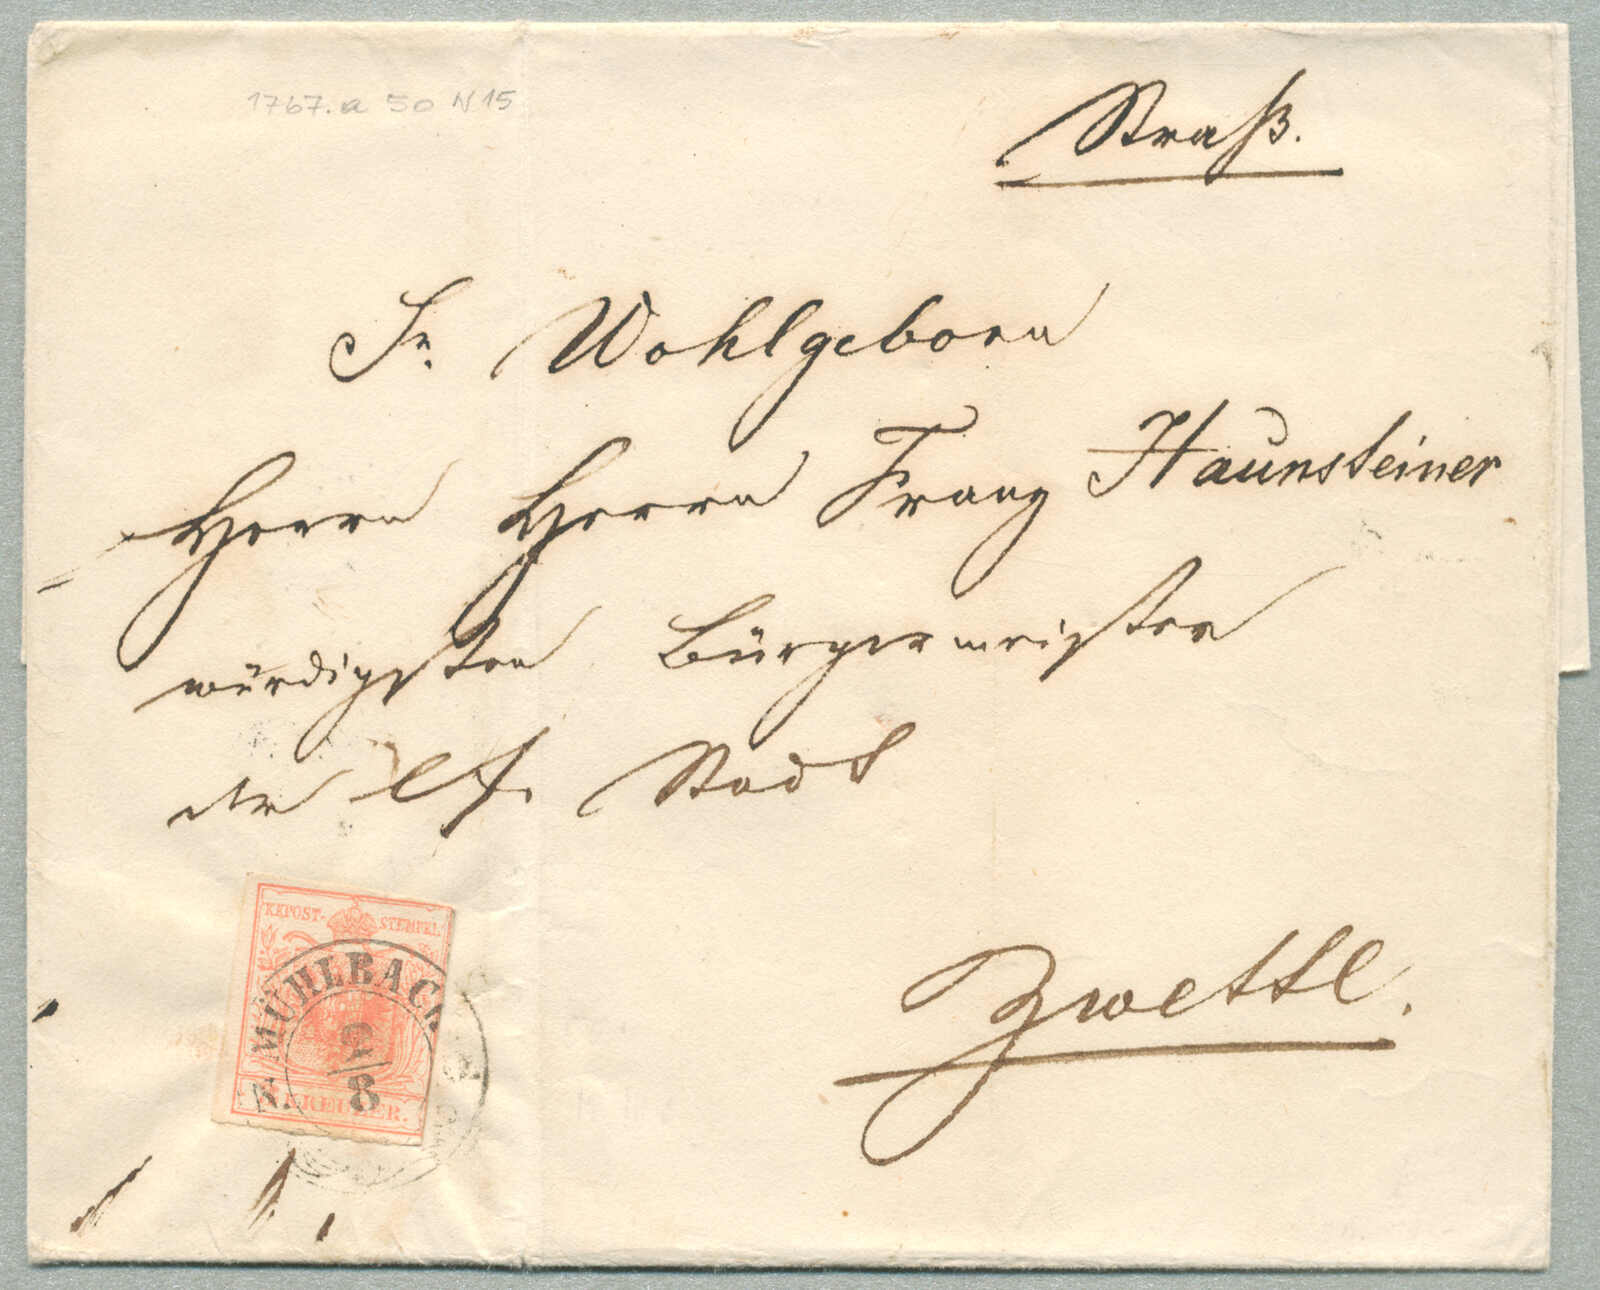 1767.a 50 N 15
Straß.
Sr. Wohlgeborn
Herrn Herrn Franz Haunsteiner
würdigsten Bürgermeister
der lf. Stadt
Zwettl.
KKPOST-STEMPEL
MÜHLBACH
9/8
KREUZER.